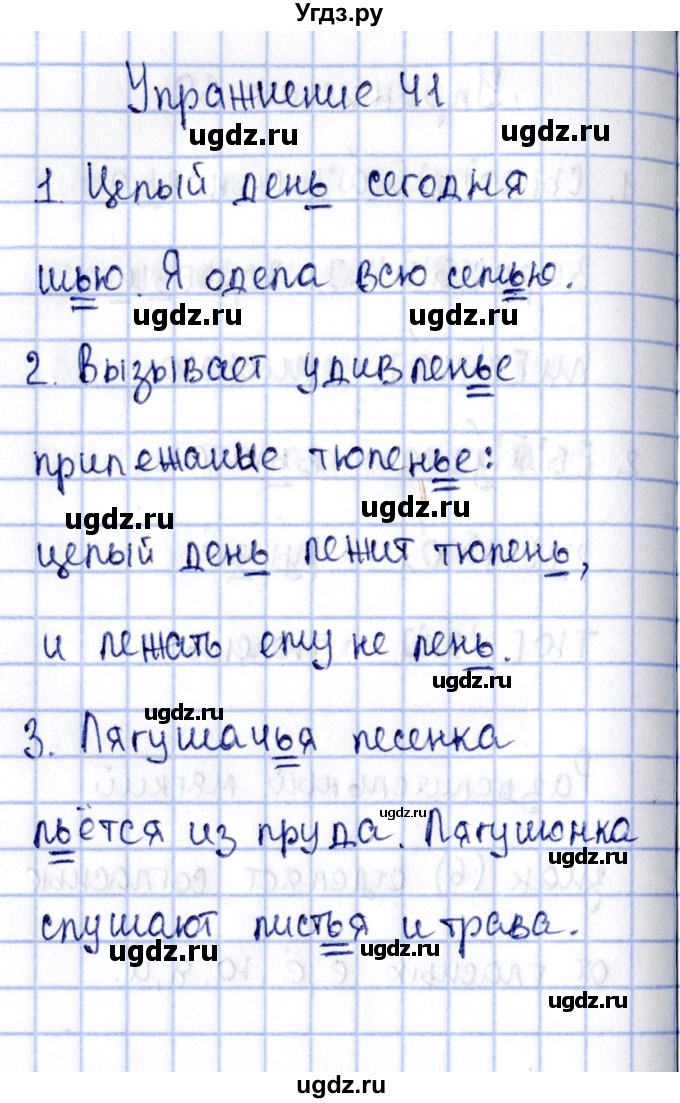 Угдз.ру
Упражнение 41
ugdz.ru ugdz.ru
1. Целый день сегодня
шью. Я одела всю семью.
ugdz.ru ugdz.ru
2. Вызывает удивленье
прилежание тюленье:
ugdz.ru ugdz.ru
целый день лежит тюлень,
и лежать ему не лень.
ugdz.ru
ugdz.ru
3. Лягушачья песенка
ugdz.ru
льётся из пруда. Лягушонка
ugdz.ru
слушают листья и трава.
ugdz.ru ugdz.ru
ugdz.ru
ugdz.ru